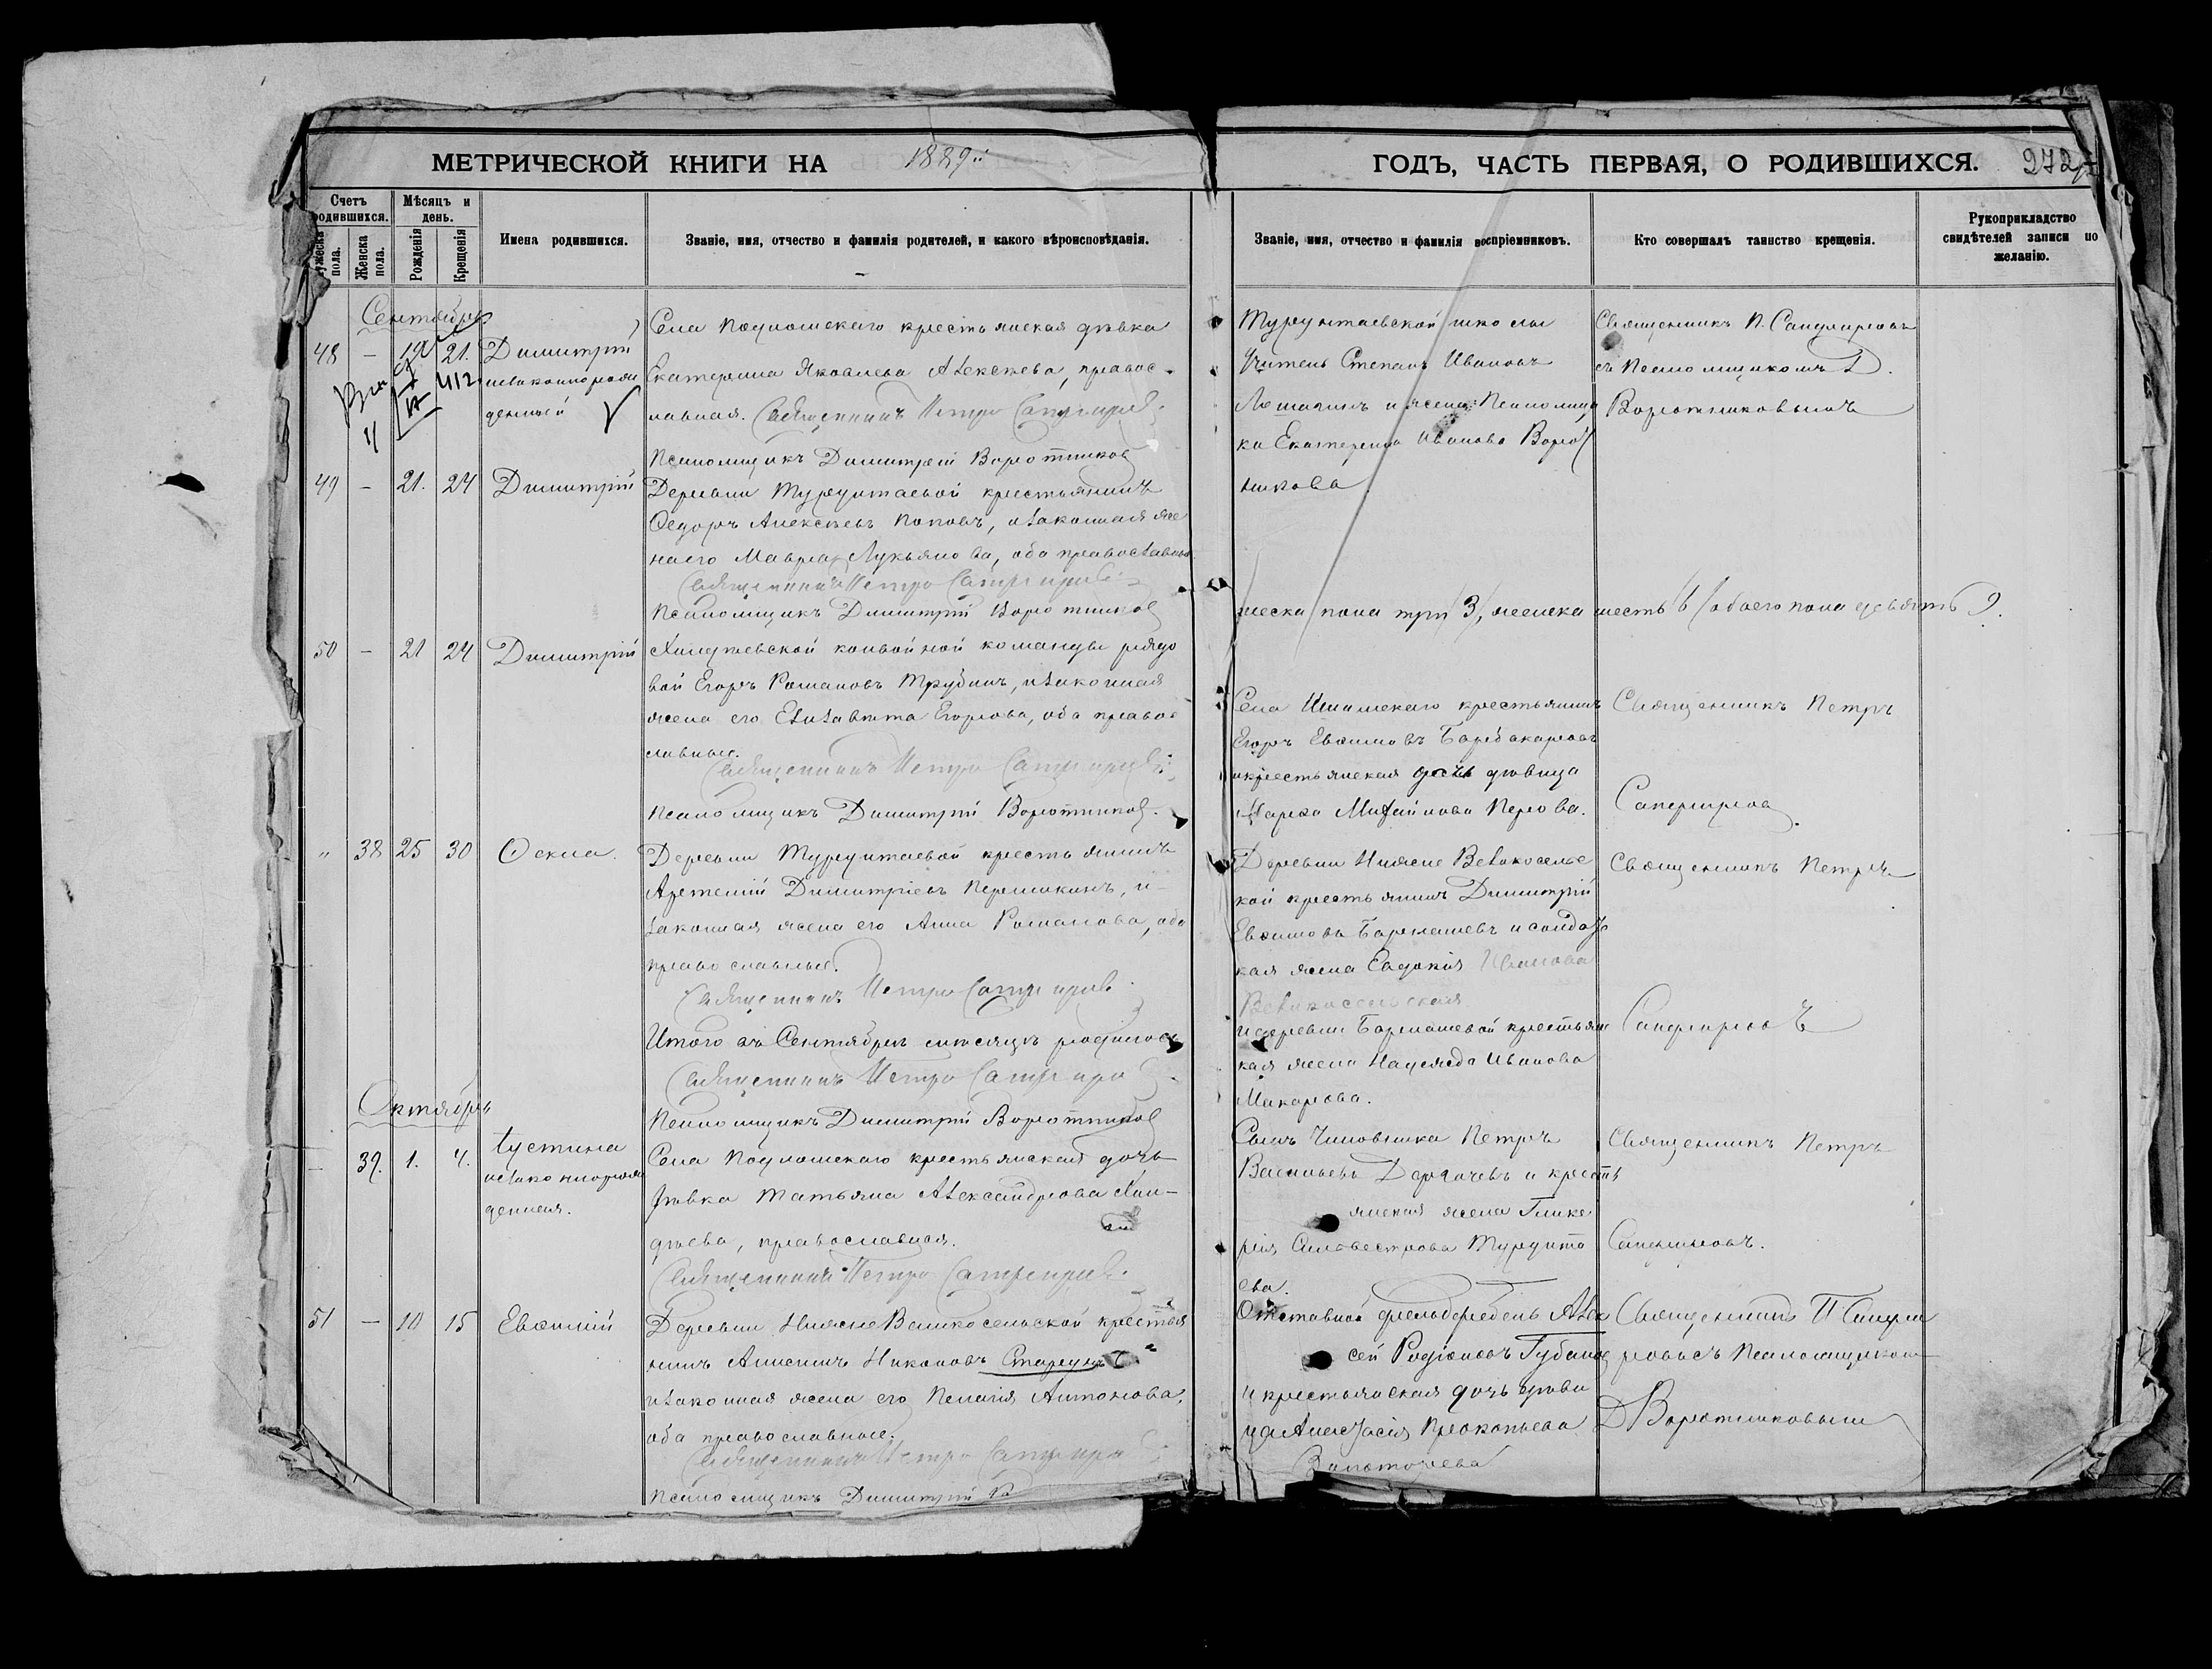 МЕТРИЧЕСКОЙ КНИГИ НА 1889й ГОДЪ, ЧАСТЬ ПЕРВАЯ, О РОДИВШИХСЯ. 272
Счетъ родившихся.
Мѣсяцъ и день.
Имена родившихся.
Званіе, имя, отчество и фамилія родителей, и какого вѣроисповѣданія.
Званіе, имя, отчество и фамилія воспріемниковъ.
Кто совершалъ таинство крещенія.
Рукоприкладство свидѣтелей записи по желанію.
пола.
Женска пола.
Рожденія
Крещенія
Сентябрь
48 — 19 21. Димитрій
незаконнорож
денный
Села крестьянская дѣвка
Екатерина Яковлева Алексѣева, правос-
лавная. Священникъ Петръ
Псаломщикъ Димитрій Воротниковъ
Турунтаевской школы
Учитель Степанъ Ивановъ
и жена Псаломщи
ка Екатерина Иванова Ворот
никова.
Священникъ П.
съ Псаломщикомъ Д.
Воротниковымъ
49 — 21. 24 Димитрій
Деревни Турунтаевой крестьянинъ
Ѳедоръ Алексѣевъ Поповъ, и законная же
на его Мавра Лукьянова, оба православные
Священникъ Петръ
Псаломщикъ Димитрій Воротниковъ
50 — 21 24 Димитрій
конвойной команды рядо
вой Егоръ Романовъ Трубинъ, и законная
жена его Елизавета Егорова, оба право
славные.
Священникъ Петръ
Псаломщикъ Димитрій Воротниковъ.
Села крестьянинъ
Егоръ Евѳимовъ
и крестьянская дочь дѣвица
Марѳа Михайлова Перова.
Священникъ Петръ
" 38 25 30 Ѳекла.
Деревни Турунтаевой крестьянинъ
Артемій Димитріевъ Перемикинъ, и
законная жена его Анна Романова, оба
православные.
Священникъ Петръ
Деревни Нижне Великосельс
кой крестьянинъ Димитрій
Евѳимовъ Бармашевъ и солдатс
кая жена Евдокія Иванова
Великосельская
и деревни Бармашевой крестьянс
кая жена Надежда Иванова
Макарова.
Священникъ Петръ
Итого въ Сентябрѣ мѣсяцѣ родилось
мужеска пола три /3/, женска шесть /6/ обоего пола девять 9.
Священникъ Петръ
Псаломщикъ Димитрій Воротниковъ
Октябрь
39. 1. 4. Iустина
незаконнорож
денная.
Села крестьянская дочь
дѣвка Татьяна Александрова Хан-
дѣева, православная.
Священникъ Петръ
Сынъ Чиновника Петръ
Васильевъ и кресть
янская жена Глике
рія Силвестрова Турунта
ева.
Священникъ Петръ
51 — 10 15 Евѳимій
Деревни Нижне Великосельской крестья
нинъ Никоновъ
и законная жена его Пелагія Антонова,
оба православные.
Священникъ Петръ
Псаломщикъ Димитрій
Отставной фельдфебель Алек
сей Родіоновъ Губановъ
и крестьянская дочь дѣви
ца Анастасія Прокопьева
Священникъ П.
съ Псаломщикомъ
Д Воротниковымъ